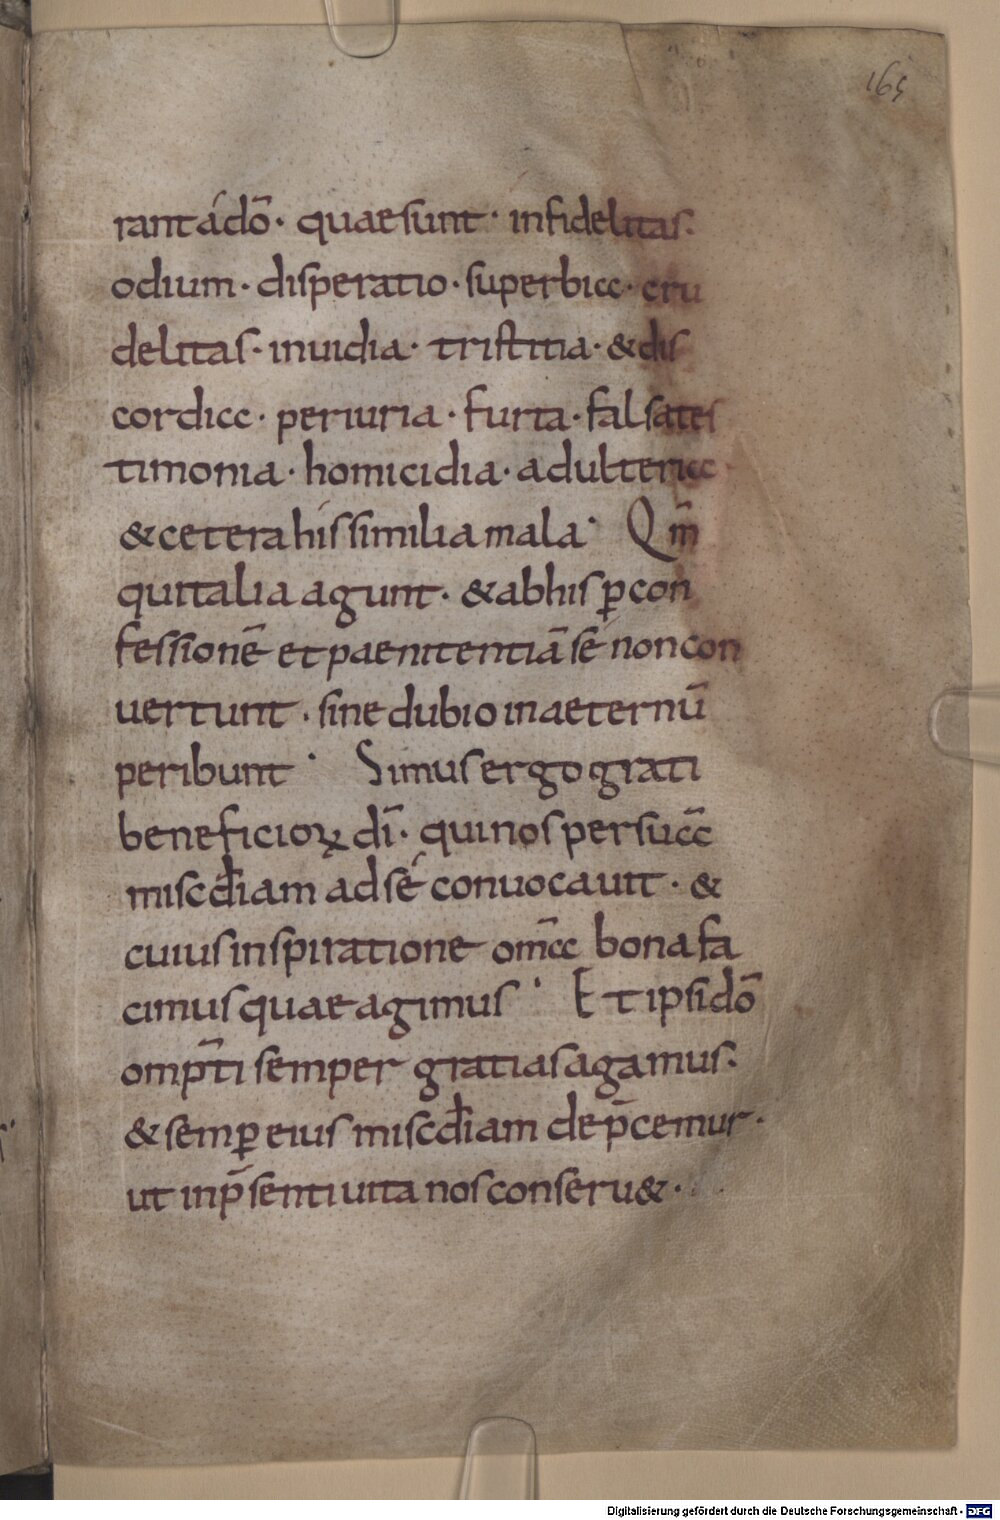 165
rant a dō· quae sunt· infidelitas·
odium· disperatio· superbia· cru
delitas· inuidia· tristitia· & dis
cordia· periuria· furta· falsa tes
timonia· homicidia· adulteria·
& cetera his similia mala· Qm̄
qui talia agunt· & ab his ꝑ con
fessionē et paenitentiā sé non con
uertunt· sine dubio in aeternū
peribunt· Simus ergo grati
beneficioꝝ dī· qui nos per suā
miscđiam ad sé conuocauit· &
cuius inspiratione om̄a bona fa
cimus quae agimus· Et ipsi dō
omp̄ti semper gratias agamus·
& semꝑ eius miscđiam dep̄cemur·
ut in p̄senti uita nos conseru&·
Digitalisierung gefördert durch die Deutsche Forschungsgemeinschaft - DFG